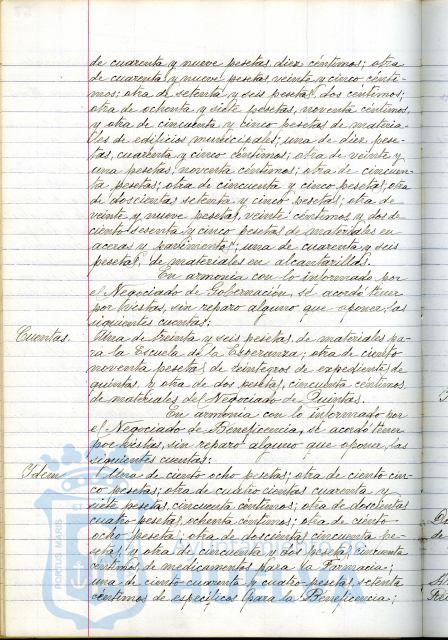 de cuarenta y nueve pesetas, diez céntimos; otra
de cuarenta y nueve pesetas, veinte y cinco cénti-
mos; otra de setenta y seis pesetas, dos céntimos;
otra de ochenta y siete pesetas, noventa céntimos,
y otra de cincuenta y cinco pesetas de materia-
les de edificios municipales; una de diez pese-
tas, cuarenta y cinco céntimos; otra de veinte y
una pesetas, noventa céntimos; otra de cincuen-
ta pesetas; otra de cincuenta y cinco pesetas; otra
de doscientas setenta y cinco pesetas; otra de
veinte y nueve pesetas, veinte céntimos y dos de
ciento sesenta y cinco pesetas de materiales en
aceras y pavimentos; una de cuarenta y seis
pesetas, de materiales en alcantarillas.
En armonía con lo informado por
el Negociado de Gobernación, se acordó tener
por vistas, sin reparo alguno que oponer, las
siguientes cuentas:
Cuentas. Una de treinta y seis pesetas, de materiales pa-
ra la Escuela de la Esperanza; otra de ciento
noventa pesetas de reintegros de expedientes de
quintas y otra de dos pesetas, cincuenta céntimos
de materiales del Negociado de Quintas.
En armonía con lo informado por
el Negociado de Beneficencia, se acordó tener
por vistas, sin reparo alguno que oponer, las
siguientes cuentas:
Idem Una de ciento ocho pesetas; otra de ciento cin-
co pesetas; otra de cuatrocientas cuarenta y
siete pesetas, cincuenta céntimos; otra de doscientas
cuatro pesetas, ochenta céntimos; otra de ciento
ocho pesetas; otra de doscientas cincuenta pe-
setas, y otra de cincuenta y dos pesetas, cincuenta
céntimos de medicamentos para la Farmacia;
una de ciento cuarenta y cuatro pesetas, setenta
céntimos de específicos para la Beneficencia;
PORTUS MAGNUS